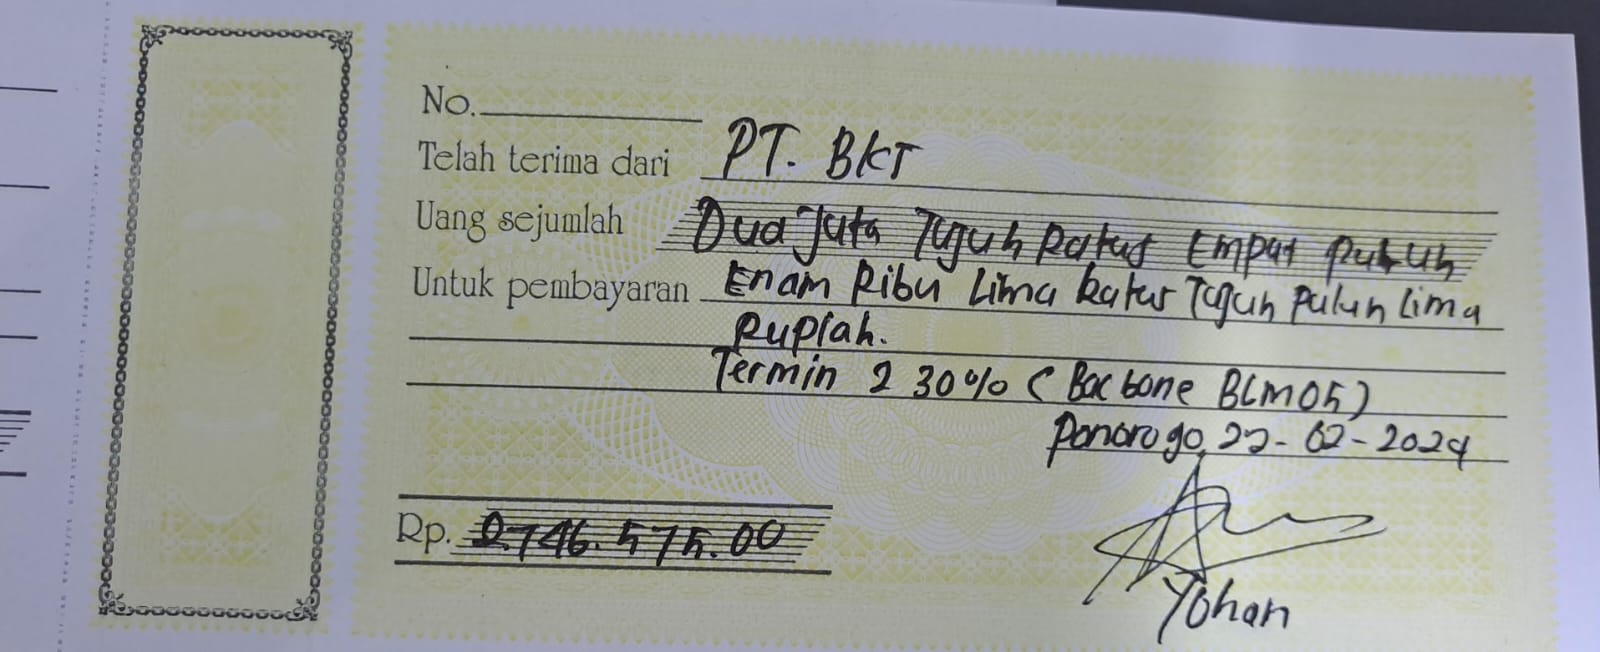 No.
Telah terima dari PT. BKT
Uang sejumlah Dua Juta Tujuh Ratus Empat Puluh
Untuk pembayaran Enam Ribu Lima Ratus Tujuh Puluh Lima
Rupiah.
Termin 2 30% ( Bacbone BLM05)
Ponorogo, 22-02-2024
Rp. 2.746.575.00
Yohan